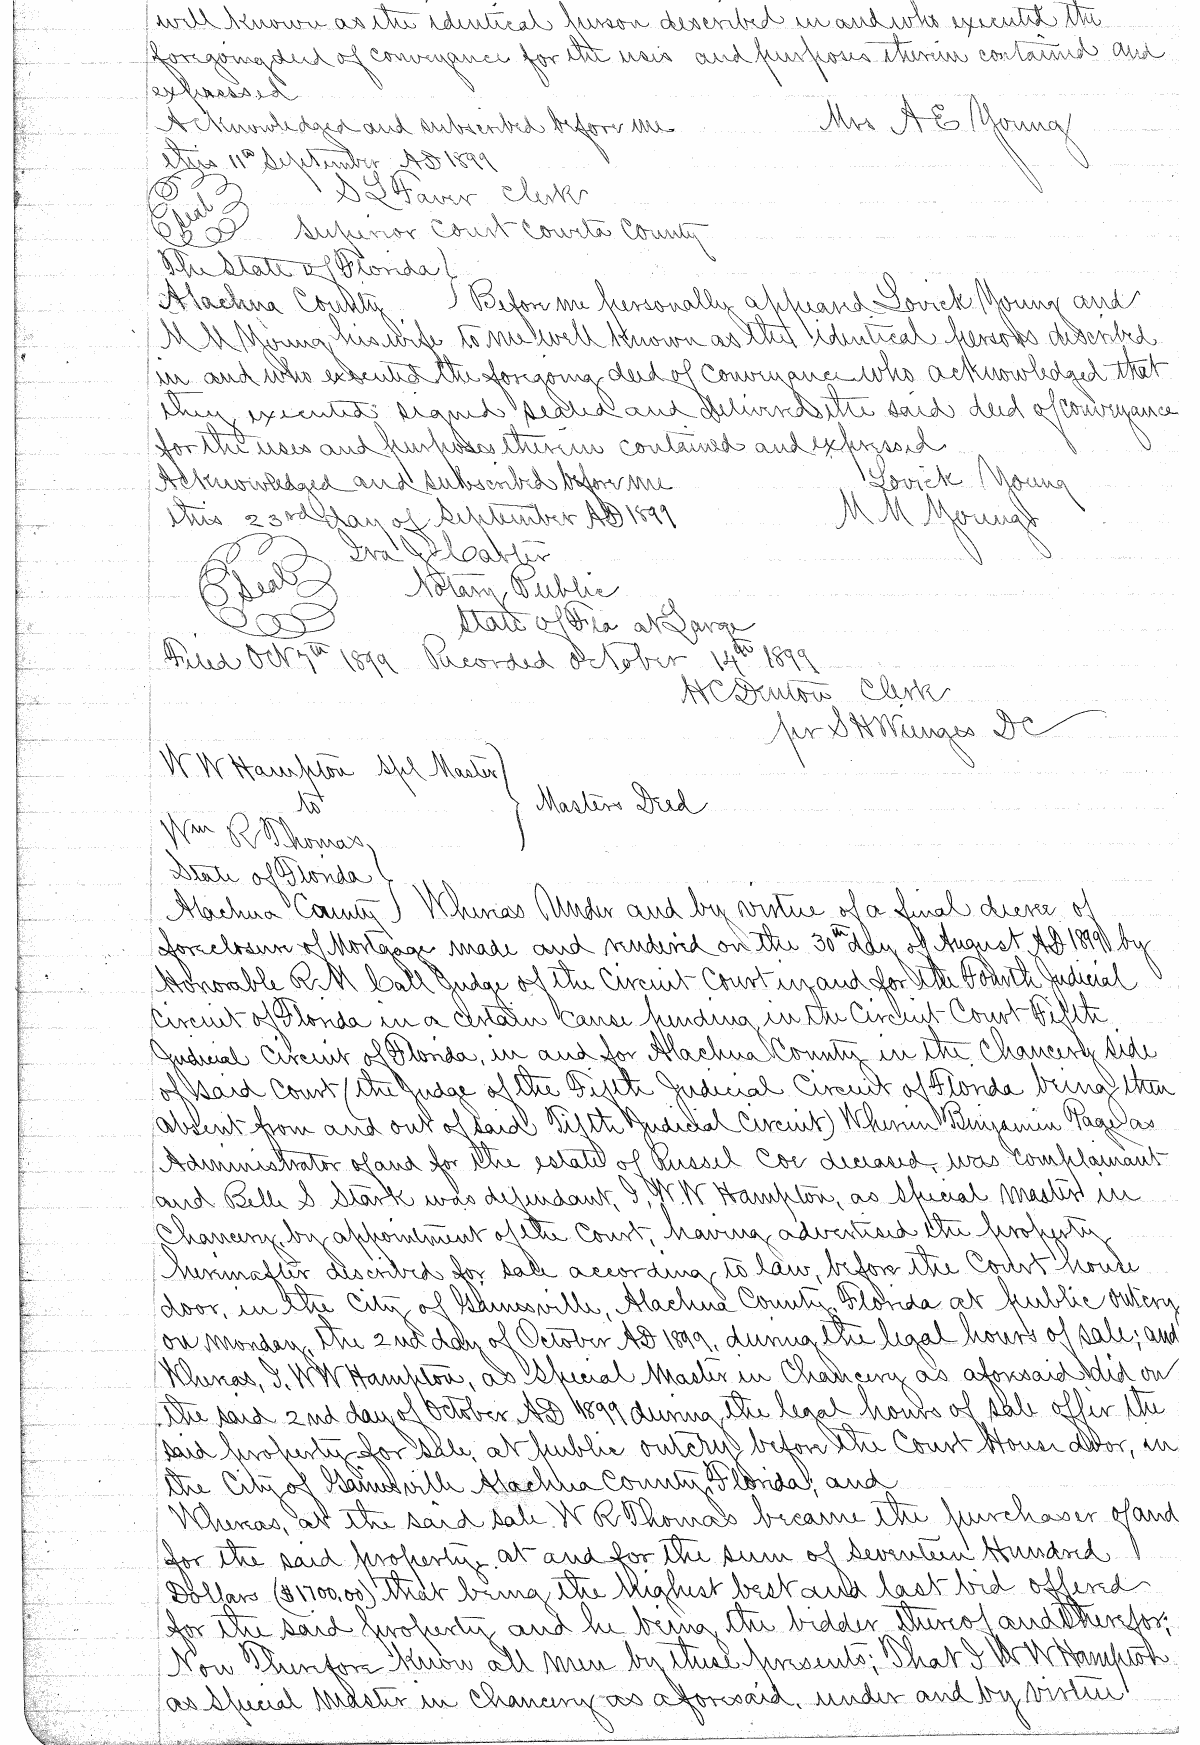 well known as the identical person described in and who executed the
foregoing deed of conveyance for the uses and purposes therein contained and
expressed
Acknowledged and subscribed before me Mrs A E Young
this 11th September AD 1899
Seal S L Faver Clerk
Superior Court Coweta County
The State of Florida
Alachua County Before me personally appeared Lovick Young and
M M Young his wife to me well known as the identical persons described
in and who executed the foregoing deed of conveyance who acknowledged that
they executed signed sealed and delivered the said deed of conveyance
for the uses and purposes therein contained and expressed
Acknowledged and subscribed before me Lovick Young
this 23rd day of September AD 1899 M M Young
Seal Ira J Carter
Notary Public
State of Fla at Large
Filed Oct 7th 1899 Recorded October 14th 1899
H C Denton Clerk
per S H Wienges DC
W W Hampton Spl Master
to Masters Deed
Wm R Thomas
State of Florida
Alachua County Whereas Under and by virtue of a final decree of
foreclosure of Mortgage made and rendered on the 30th day of August AD 1899 by
Honorable R M Call Judge of the Circuit Court in and for the Fourth Judicial
Circuit of Florida in a certain cause pending in the Circuit Court Fifth
Judicial Circuit of Florida, in and for Alachua County in the Chancery side
of said Court (the Judge of the Fifth Judicial Circuit of Florida being then
absent from and out of said Fifth Judicial Circuit) Wherein Benjamin Page as
Administrator of and for the estate of Russel Coe deceased, was complainant
and Belle S Stark was defendant, I, W W Hampton, as Special Master in
Chancery, by appointment of the Court, having advertised the property
hereinafter described for sale according to law, before the Court house
door, in the City of Gainesville, Alachua County, Florida at public outcry
on Monday, the 2nd day of October AD 1899, during the legal hours of sale; and
Whereas, I, W W Hampton, as Special Master in Chancery as aforesaid did on
the said 2nd day of October AD 1899 during the legal hours of sale offer the
said property for sale, at public outcry before the Court House door, in
the City of Gainesville Alachua County, Florida; and
Whereas, at the said sale W R Thomas became the purchaser of and
for the said property at and for the sum of Seventeen Hundred
Dollars ($1700.00) that being the highest best and last bid offered
for the said property and he being the bidder thereof and therefor;
Now Therefore Know all men by these presents; That I W W Hampton
as Special Master in Chancery as aforesaid, under and by virtue